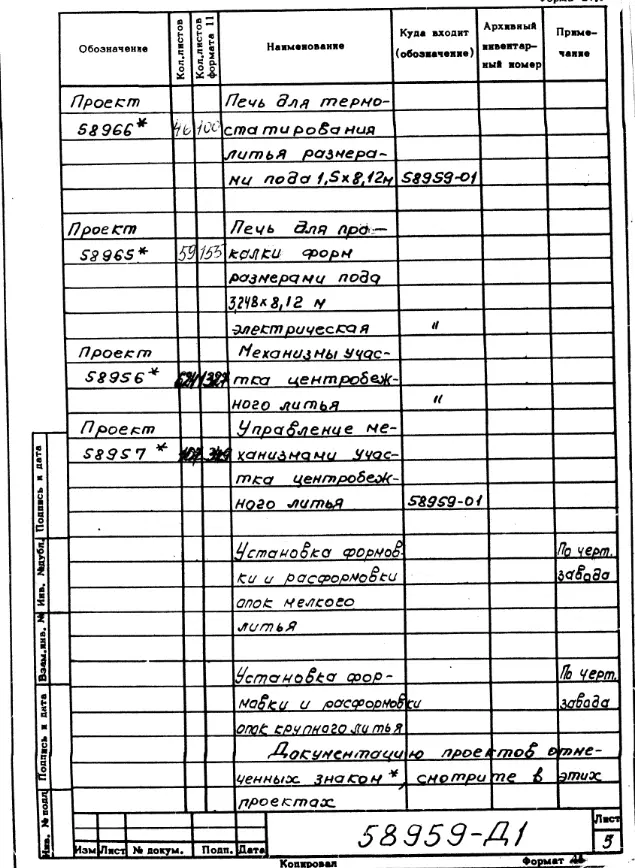 Обозначение Кол.листов Кол.листов формата 11 Наименование Куда входит (обозначение) Архивный инвентарный номер Примечание
Проект Печь для термо-
58966* 46 100 статирования
литья размера-
ми пода 1,5х8,12м 58959-01
Проект Печь для про-
58965* 59 155 калки форм
размерами пода
3,248х8,12 м
электрическая "
Проект Механизмы учас-
58956* тка центробеж-
ного литья "
Проект Управление ме-
58957* ханизмами учас-
тка центробеж-
ного литья 58959-01
Установка формов- По черт.
ки и расформовки завода
опок мелкого
литья
Установка фор- По черт.
мовки и расформовки завода
опок крупного литья
Документацию проектов отме-
ченных знаком *, смотрите в этих
проектах
Подпись и дата
Инв. №дубл.
Взам.инв. №
Подпись и дата
Инв. № подл
Изм Лист № докум. Подп. Дата
58959-Д1
Лист
5
Копировал Формат